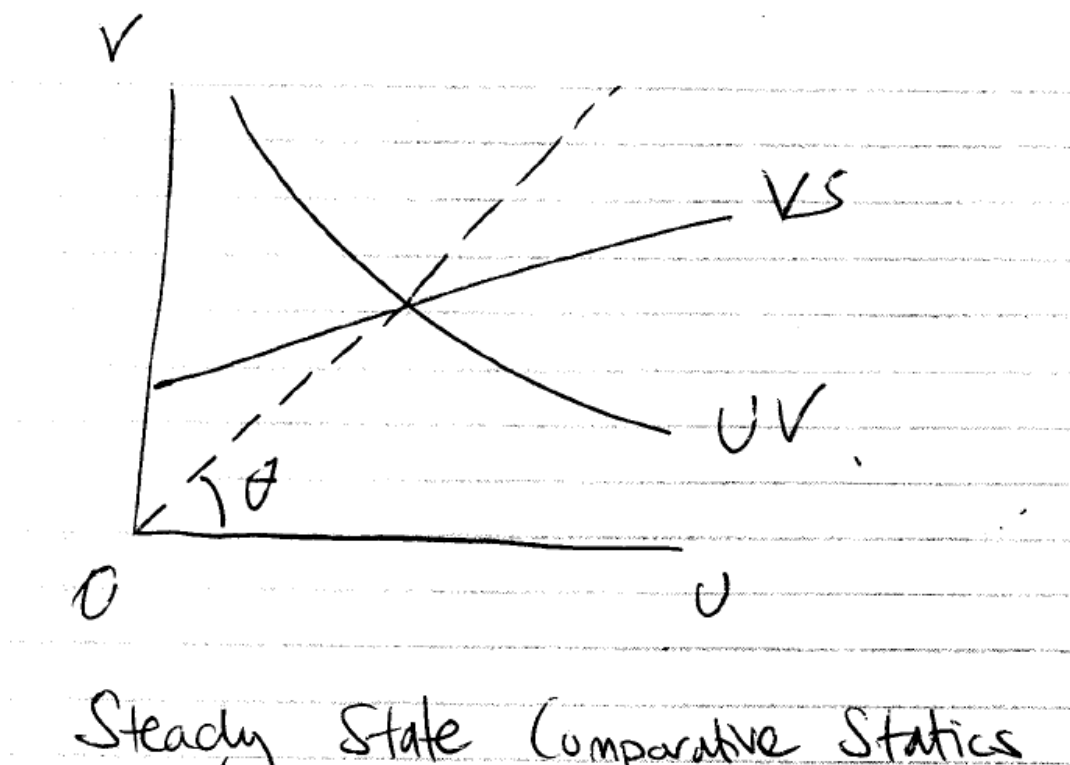 V
VS
UV
θ
O
U
Steady State Comparative Statics